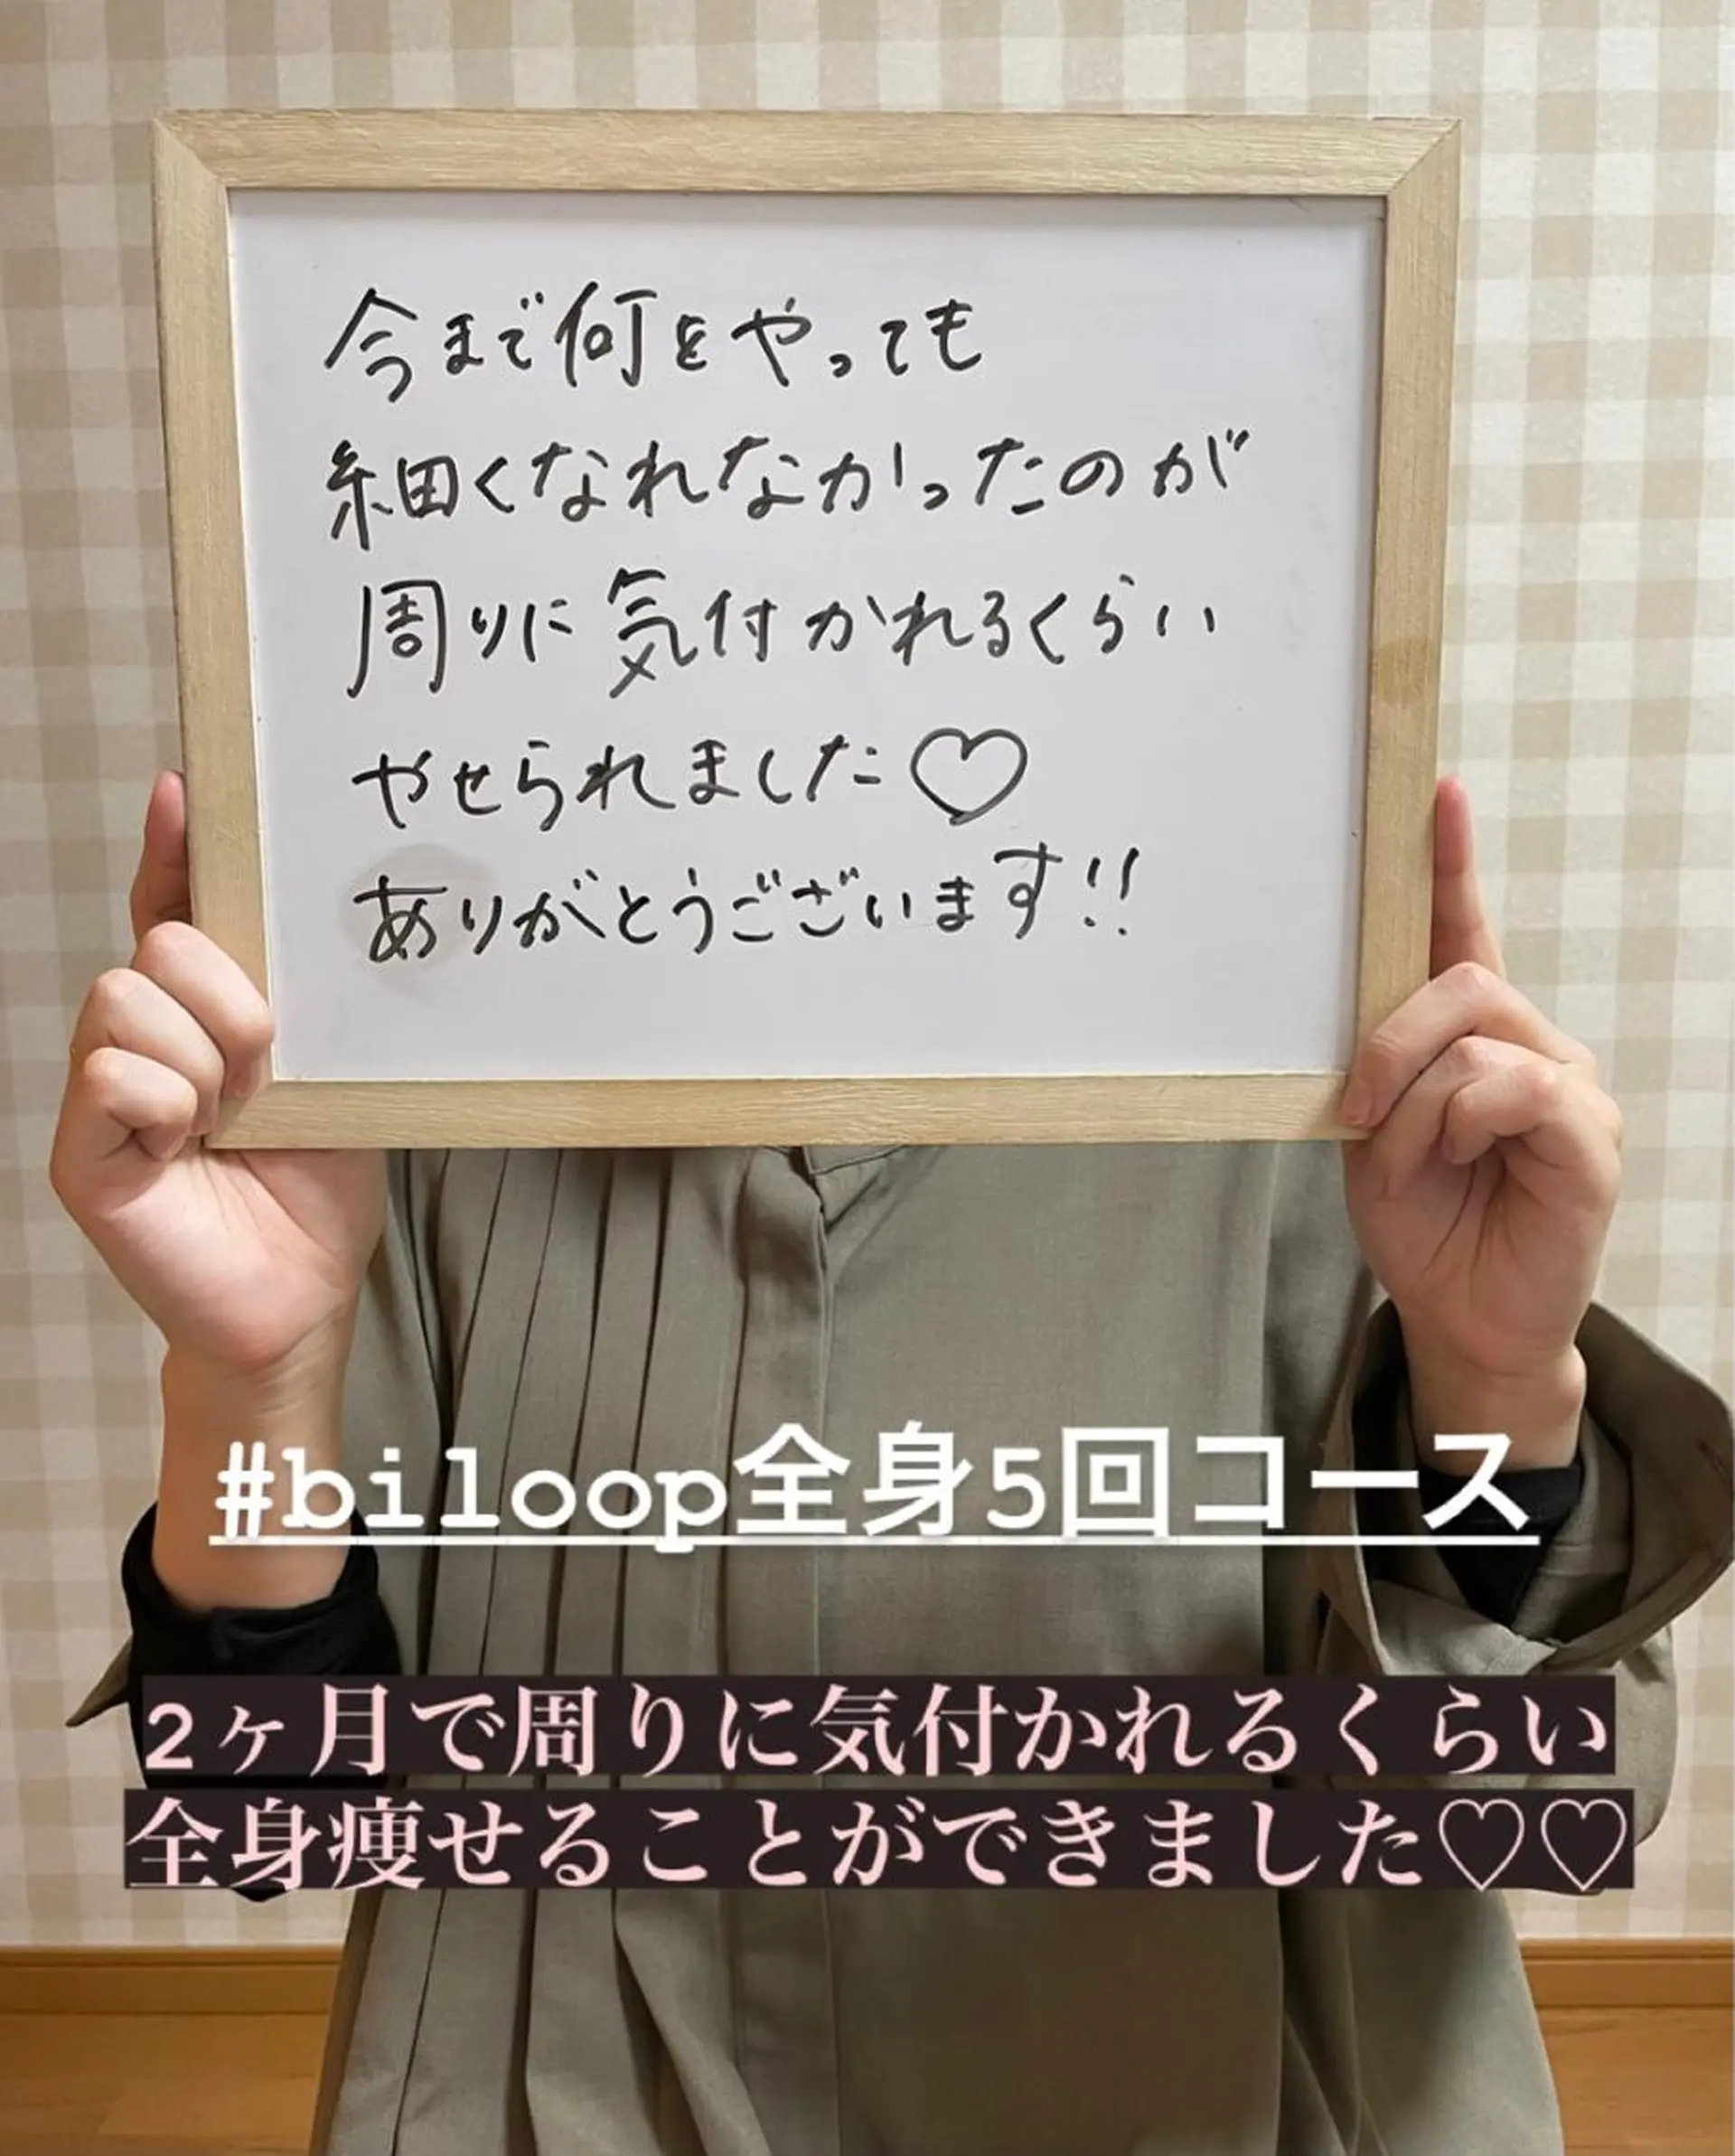 今まで何をやっても
細くなれなかったのが
周りに気付かれるくらい
やせられました♡
ありがとうございます!!
#biloop全身5回コース
2ヶ月で周りに気付かれるくらい
全身痩せることができました♡♡